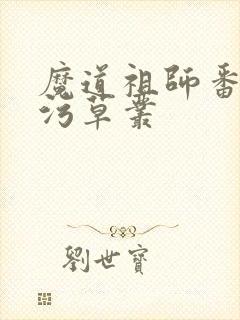 魔道祖師番
污草叢
劉世寶